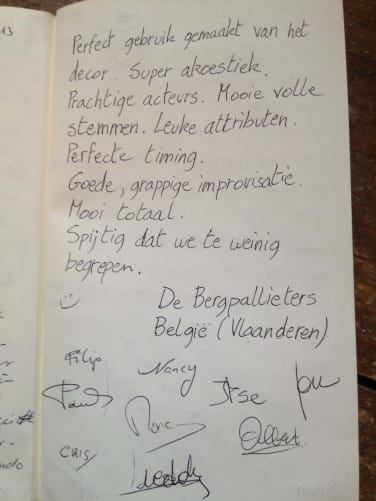 13
Perfect gebruik gemaakt van het
decor. Super akoestiek.
Prachtige acteurs. Mooie volle
stemmen. Leuke attributen.
Perfecte timing.
Goede, grappige improvisatie.
Mooi totaal.
Spijtig dat we te weinig
begrepen.
De Bergpallieters
België (Vlaanderen)
Filip
Nancy
Ilse
CHIS